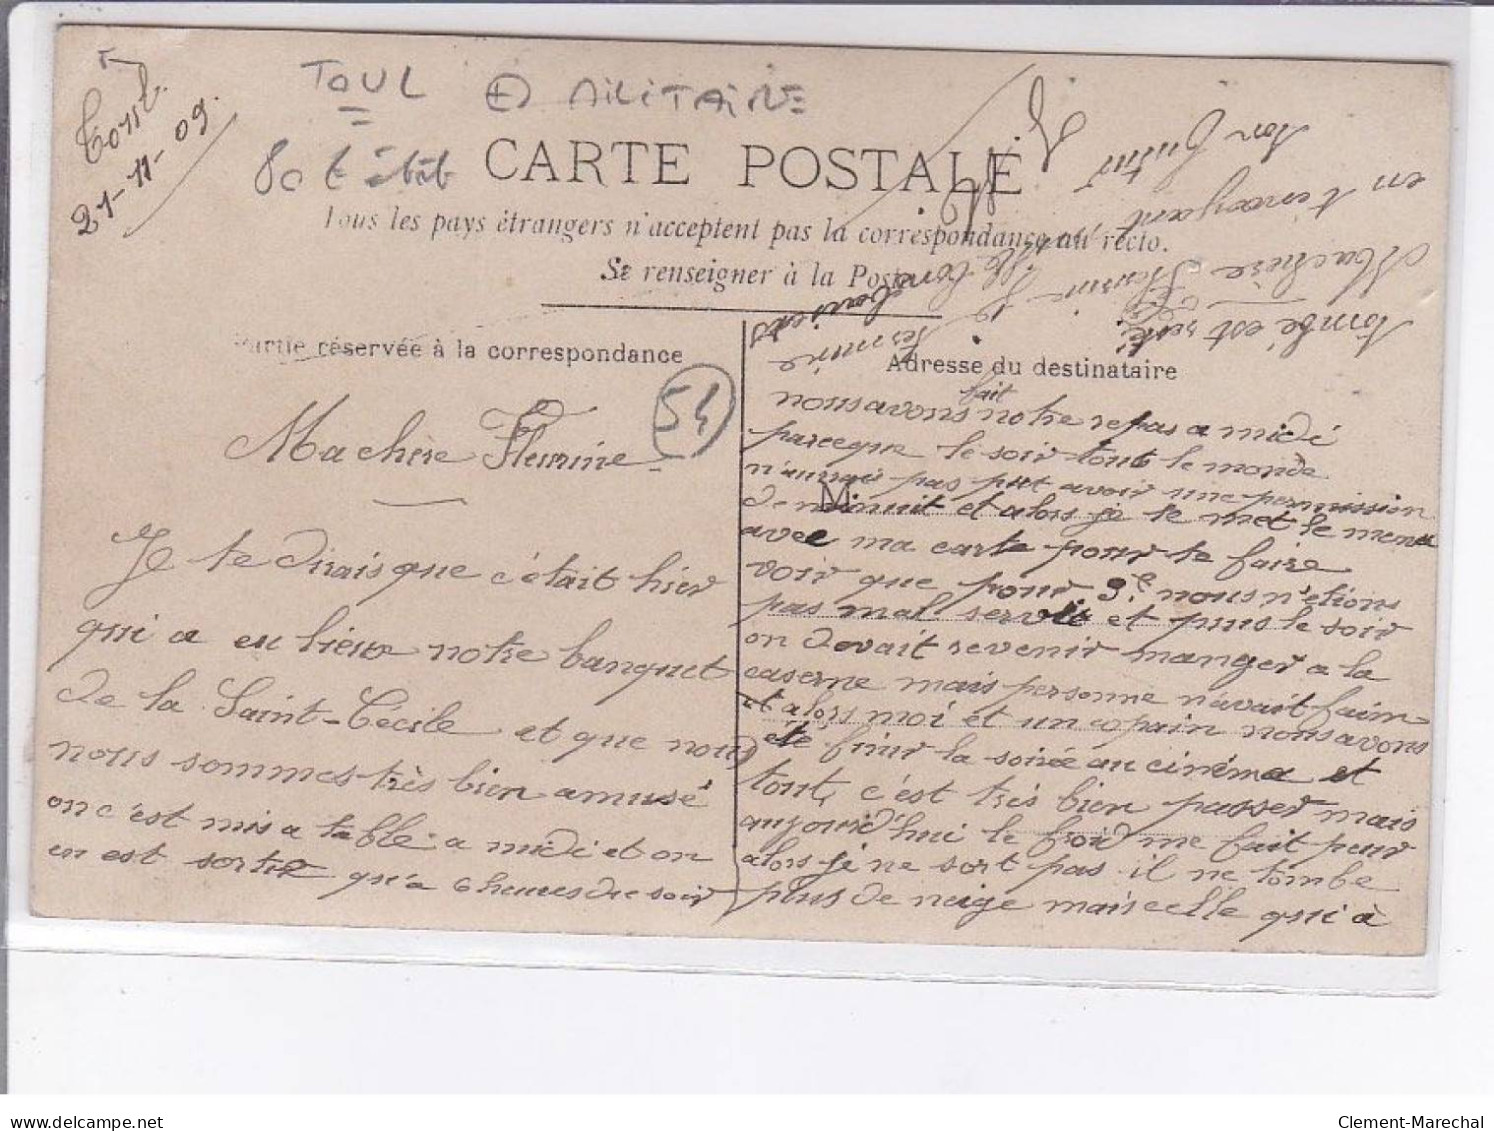 Toul
21-11-09
TOUL MILITAIRE
80 t état
CARTE POSTALE
Tous les pays étrangers n'acceptent pas la correspondance au recto.
Se renseigner à la Poste
Partie réservée à la correspondance
Adresse du destinataire
54
M
Ma chère Fleurine
Je te dirais que c'était hier
qui a eu lieux notre banquet
de la Saint-Cécile et que nous
nous sommes très bien amusé
on c'est mis a table a midi et on
en est sortie qu'a 6 heures du soir
nous avons fait notre repas a midi
parceque le soir tout le monde
n'aurrais pas put avoir une permission
de minuit et alors je te met le menu
avec ma carte pour te faire
voir que pour 3. nous n'étions
pas mal servit et puis le soir
on devait revenir manger a la
caserne mais personne n'avait faim
et alors moi et un copain nous avons
été finir la soirée au cinéma et
tout, c'est très bien passer mais
aujourd'hui le froid me fait peur
alors je ne sort pas il ne tombe
plus de neige mais celle qui à
tombé est resté
Ma chère Fleurine
en t'envoyant
ton futur
delcampe.net
Clement-Marechal